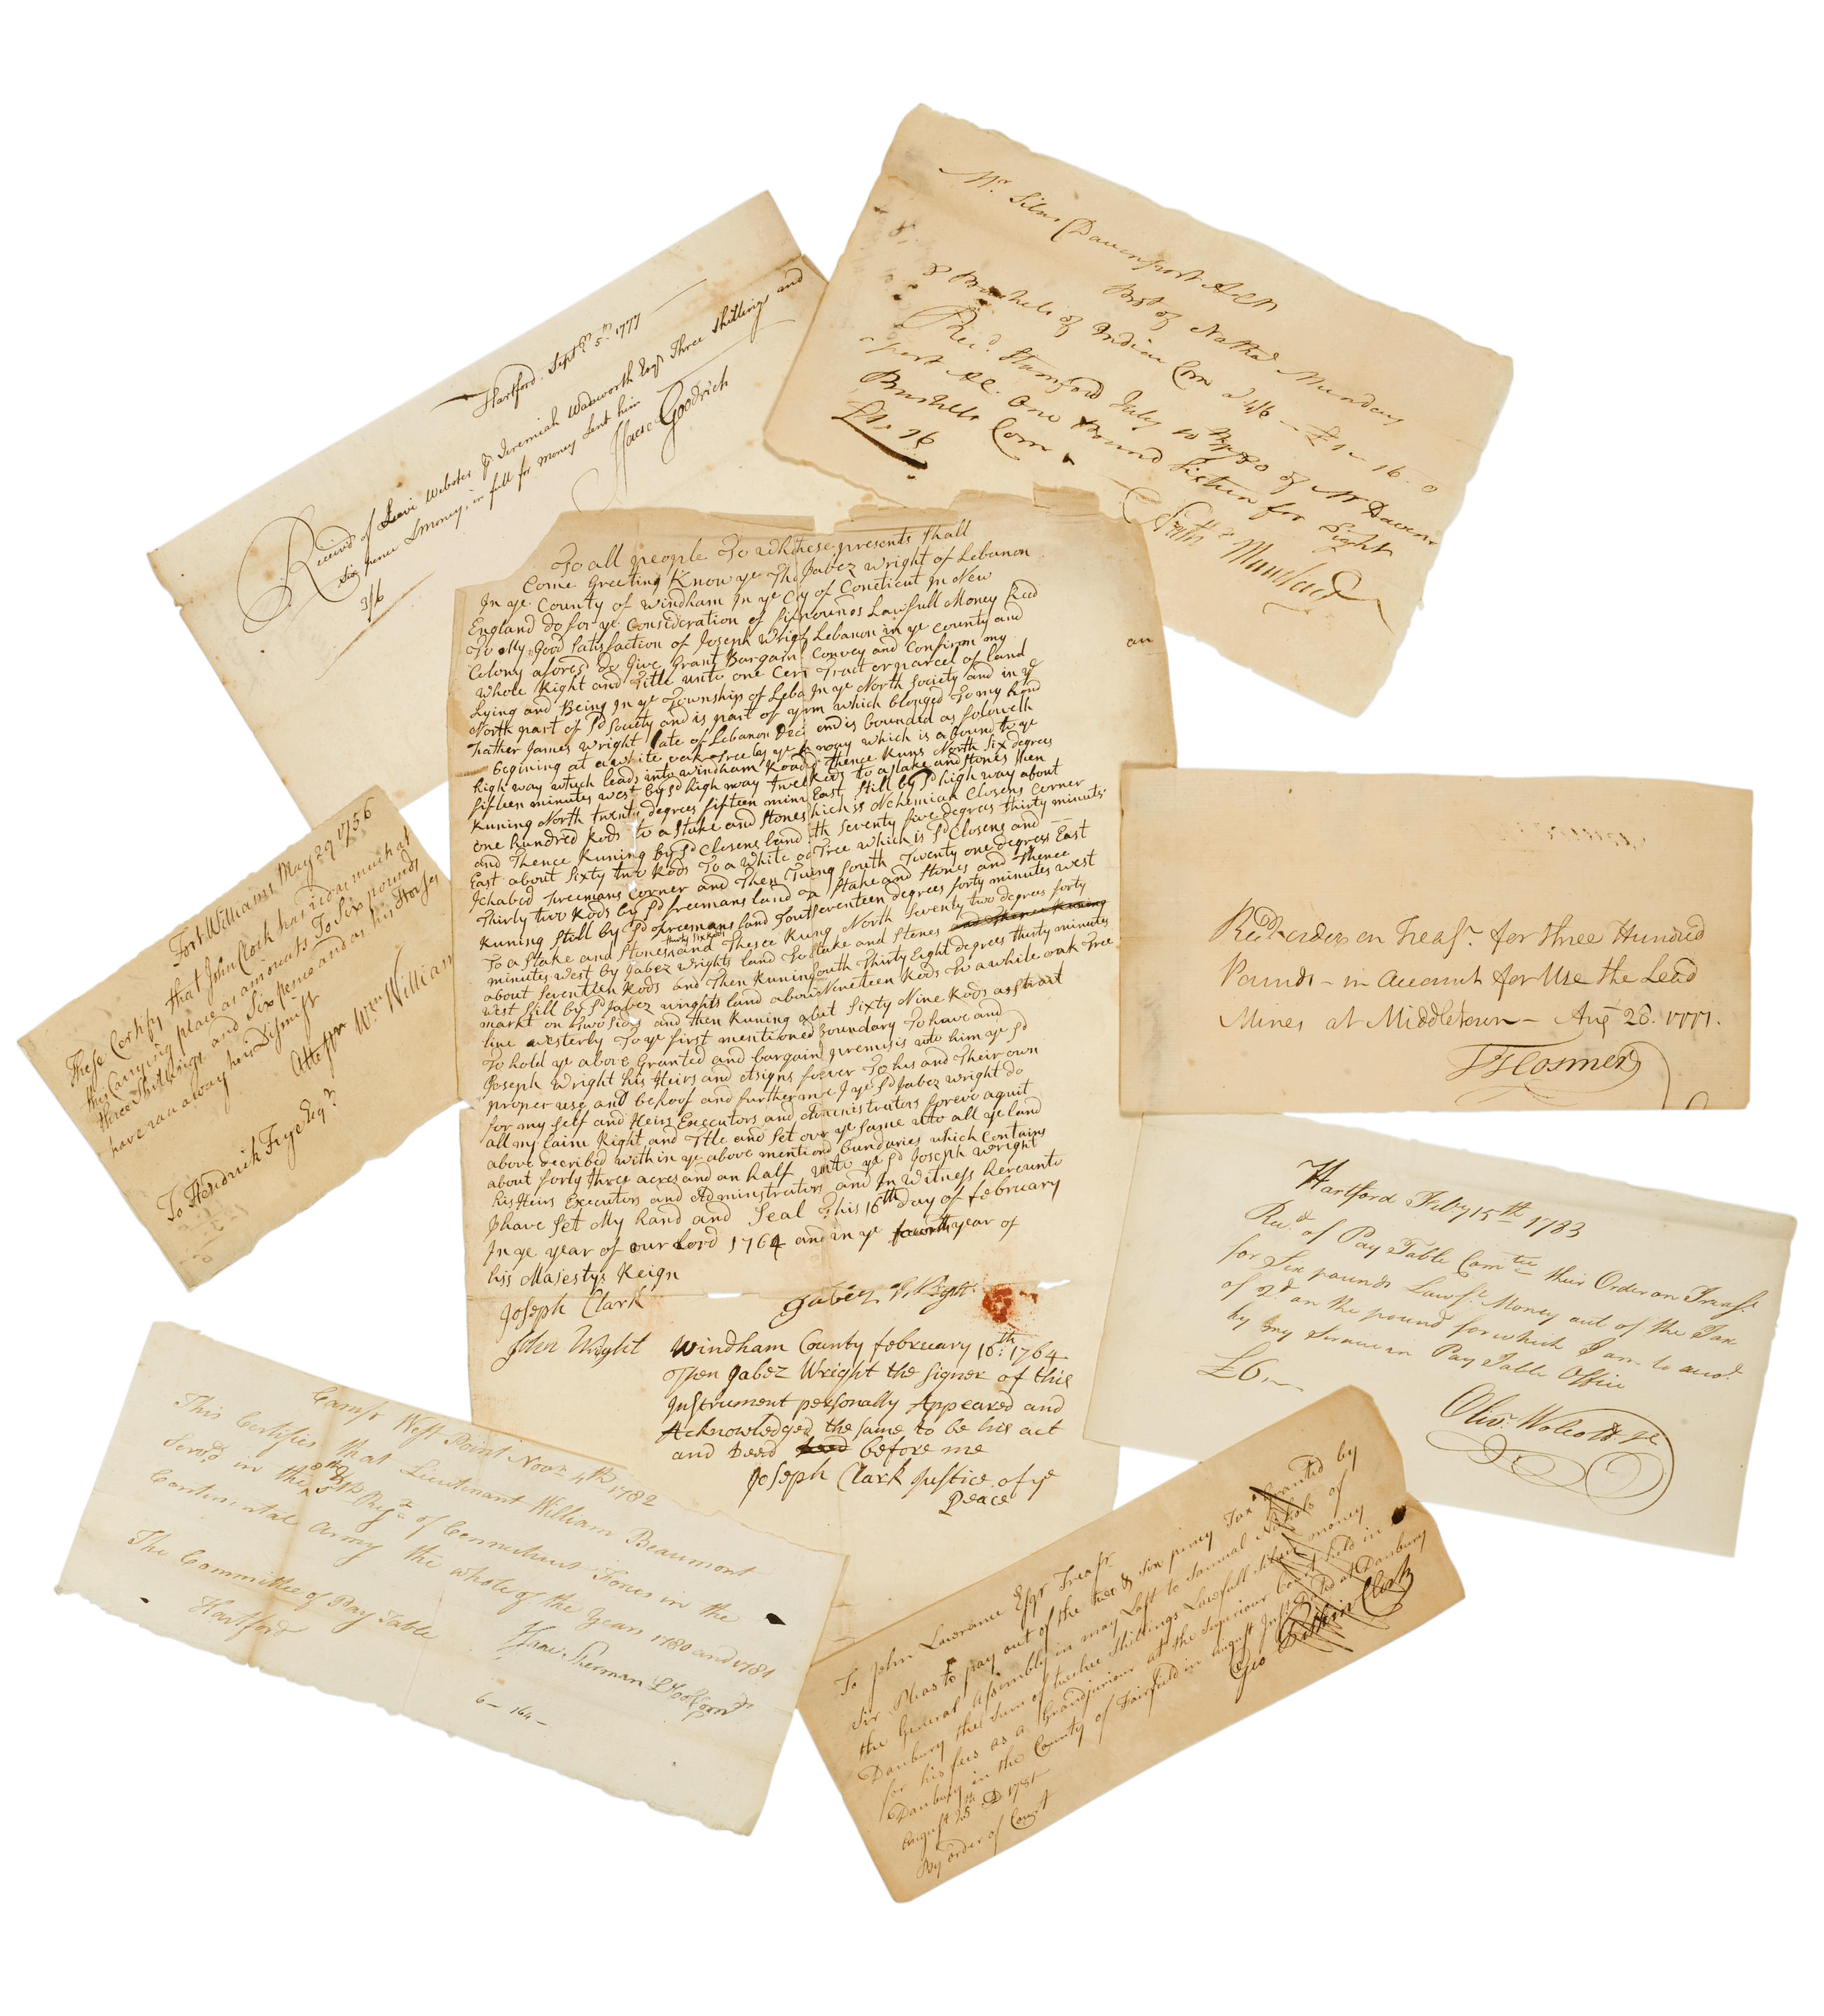 Hartford Septr. 5th. 1777
Receivd of Levi Webster pr. Jeremiah Wadsworth Esqr Three Shillings and
Six pence L money, in full for money Lent him
3/6
Isaac Goodrich
Mr. Silus Davenport
Bot of Nathal Munday
8 Bushels of Indian Corn a 4/6 - £1 - 16 - 0
Recd. Stamford July 10 1780 of Mr Daven
port One Pound Sixteen for Eight
Bushells Corn
£1 - 16
To all people To Wh these presents Shall
Come Greeting Know ye Th Jabez Wright of Lebanon
In ye County of Windham In ye Cy of Coneticut In New
England Do for ye Consideration of Lawfull Money Recd
To My Good Satisfaction of Joseph Wrigh Lebanon in ye County and
Colony aforesd Do Give Grant Bargain Convey and Confirm my
Whole Right and Title unto one Cer Tract or parcel of land
Lying and Being In ye Township of Leba In ye North Society and in ye
North part of sd Society and is part of which blonged To my hond
Father James Wright Late of Lebanon Decd and is bounded as foloweth
begining at a white oak Tree by ye h way which is a bound to ye
high way which leads into Windham Road Thence Runs North Six degrees
fifteen minutes west by sd high way twe Rods to a stake and stones then
Runing North twenty degrees fifteen minu East Still by sd high way about
one hundred Rods to a Stake and Stones hich is Nehemiah Closens Corner
and Thence Runing by sd Closens land th Seventy five degrees thirty minutes
East about Sixty two Rods To a White oa Tree which is sd Closens and
Ichabod Freemans Corner and Then uning South Twenty one degrees East
Thirty two Rods by sd freemans land To a Stake and Stones and Thence
Runing Still by sd freemans land South seventeen degrees forty minutes west
thirty six Rods
To a Stake and Stones and Thence Rung North Seventy two degrees forty
minutes West by Jabez Wrights land To Stake and Stones and Thence Runing
about Seventeen Rods and Then Runing outh Thirty Eight degrees thirty minutes
West Still by sd Jabez wrights land about Nineteen Rods To a white oak Tree
markt on Two Sides and then Runing about Sixty Nine Rods a Strait
line westerly To ye first mentioned Boundary To have and
To hold ye above Granted and bargain premisis unto him ye sd
Joseph Wright his Heirs and Asigns forever To his and Their own
proper use and behoof and furthermore I ye sd Jabez Wright do
for my Self and Heirs Executors and Administrators forever aquit
all my Claim Right and Title and Set over ye same unto all ye land
above decribed within ye above mentiond bundaries which Contains
about forty three acres and an half unto ye sd Joseph Wright
his Heirs Executors and Administrators and In Witness hereunto
I have Set My hand and Seal This 16th day of february
In ye year of our Lord 1764 and in ye fourth year of
his Majestys Reign
Joseph Clark
John Wright
Jabez Wright
Windham County february 16th: 1764
Then Jabez Wright the Signer of this
Instrument personally Appeared and
Acknowledged the same to be his act
and Deed before me
Joseph Clark Justice of ye
Peace
an
Fort Williams May 29 1756
These Certify that John Clock has rid as much at
this Carrying place as amounts To Six pounds
three Shillings and Six pence and as his Horses
have ran away he is Dismist
Wm Williams
To Hendrick Frye Esqr.
Recd order on Treasr. for three Hundred
Pounds - in account for Use the Lead
Mines at Middletown - Aug 28. 1777.
T Hosmer
Hartford Feby 15th 1783
Recd. of Pay Table Comtee their Order on Treasr.
for Six pounds Lawfl. Money out of the Tax
of 2d on the pound for which I am to accot.
by my Service in Pay Table Office
£6 —
Olivr. Wolcott Jr
Camp West Point Novr 4th 1782
This Certifies that Lieutenant William Beaumont
Servd in the Regt of Connecticut Forces in the
Continental Army the whole of the Years 1780 and 1781
Isaac Sherman Lt Col Comdt
The Committee of Pay Table
Hartford
6 — 164 —
To John Lawrance Esqr Treasr
Sir Pleas to pay out of the two & six penny Tax Granted by
the General Assembly in may Last to Samuel Nichols of
Danbury the Sum of twelve Shillings Lawfull money
for his fees as a Grandjurior at the Superiour Court held in
Danbury in the County of Fairfield in august Inst Dated at Danbury
August 25th AD 1781
By order of Court
Clerk